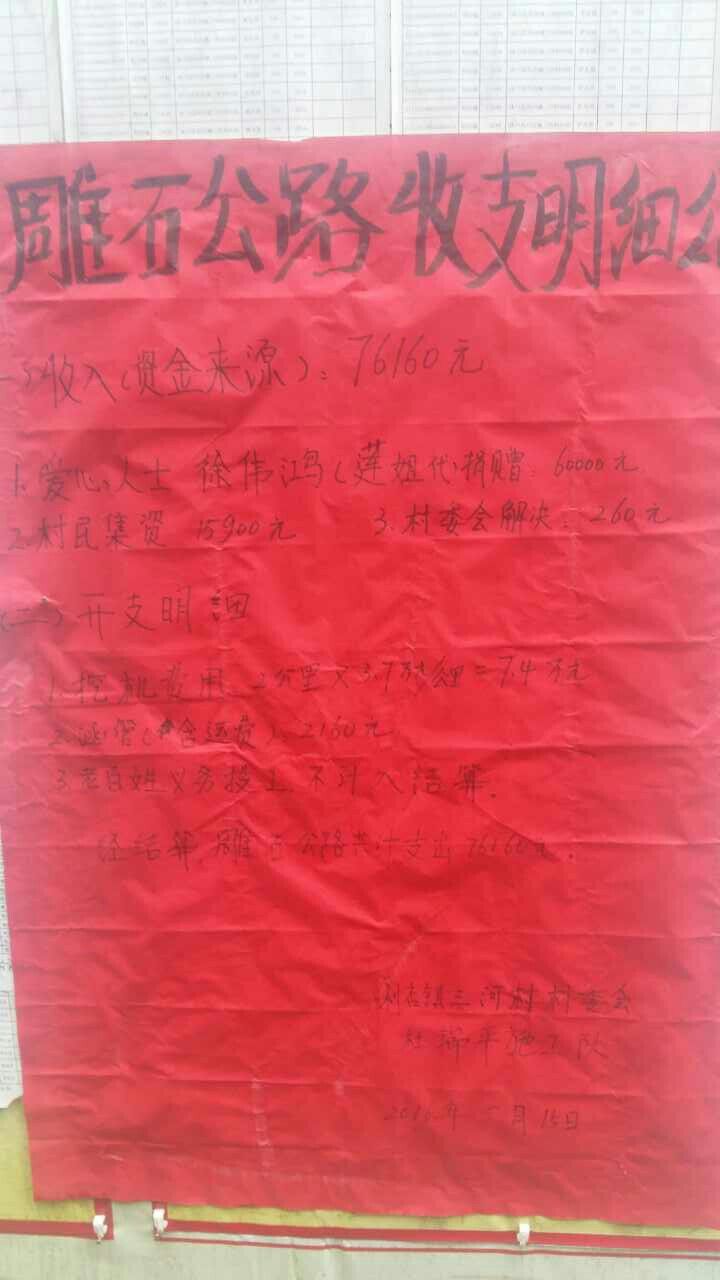 雕石公路收支明细公
一、收入(资金来源): 76160元
1.爱心人士 徐伟鸿(莲姐代)捐赠: 60000元
2.村民集资 15900元 3.村委会解决: 260元
(二)开支明细
1.挖机费用 2公里×3.7万/公里=7.4万元
2.涵管(含运费): 2160元
3.老百姓义务投工, 不计入结算.
经结算, 雕石公路共计支出76160元.
三河村村委会
施工队
2016年5月15日